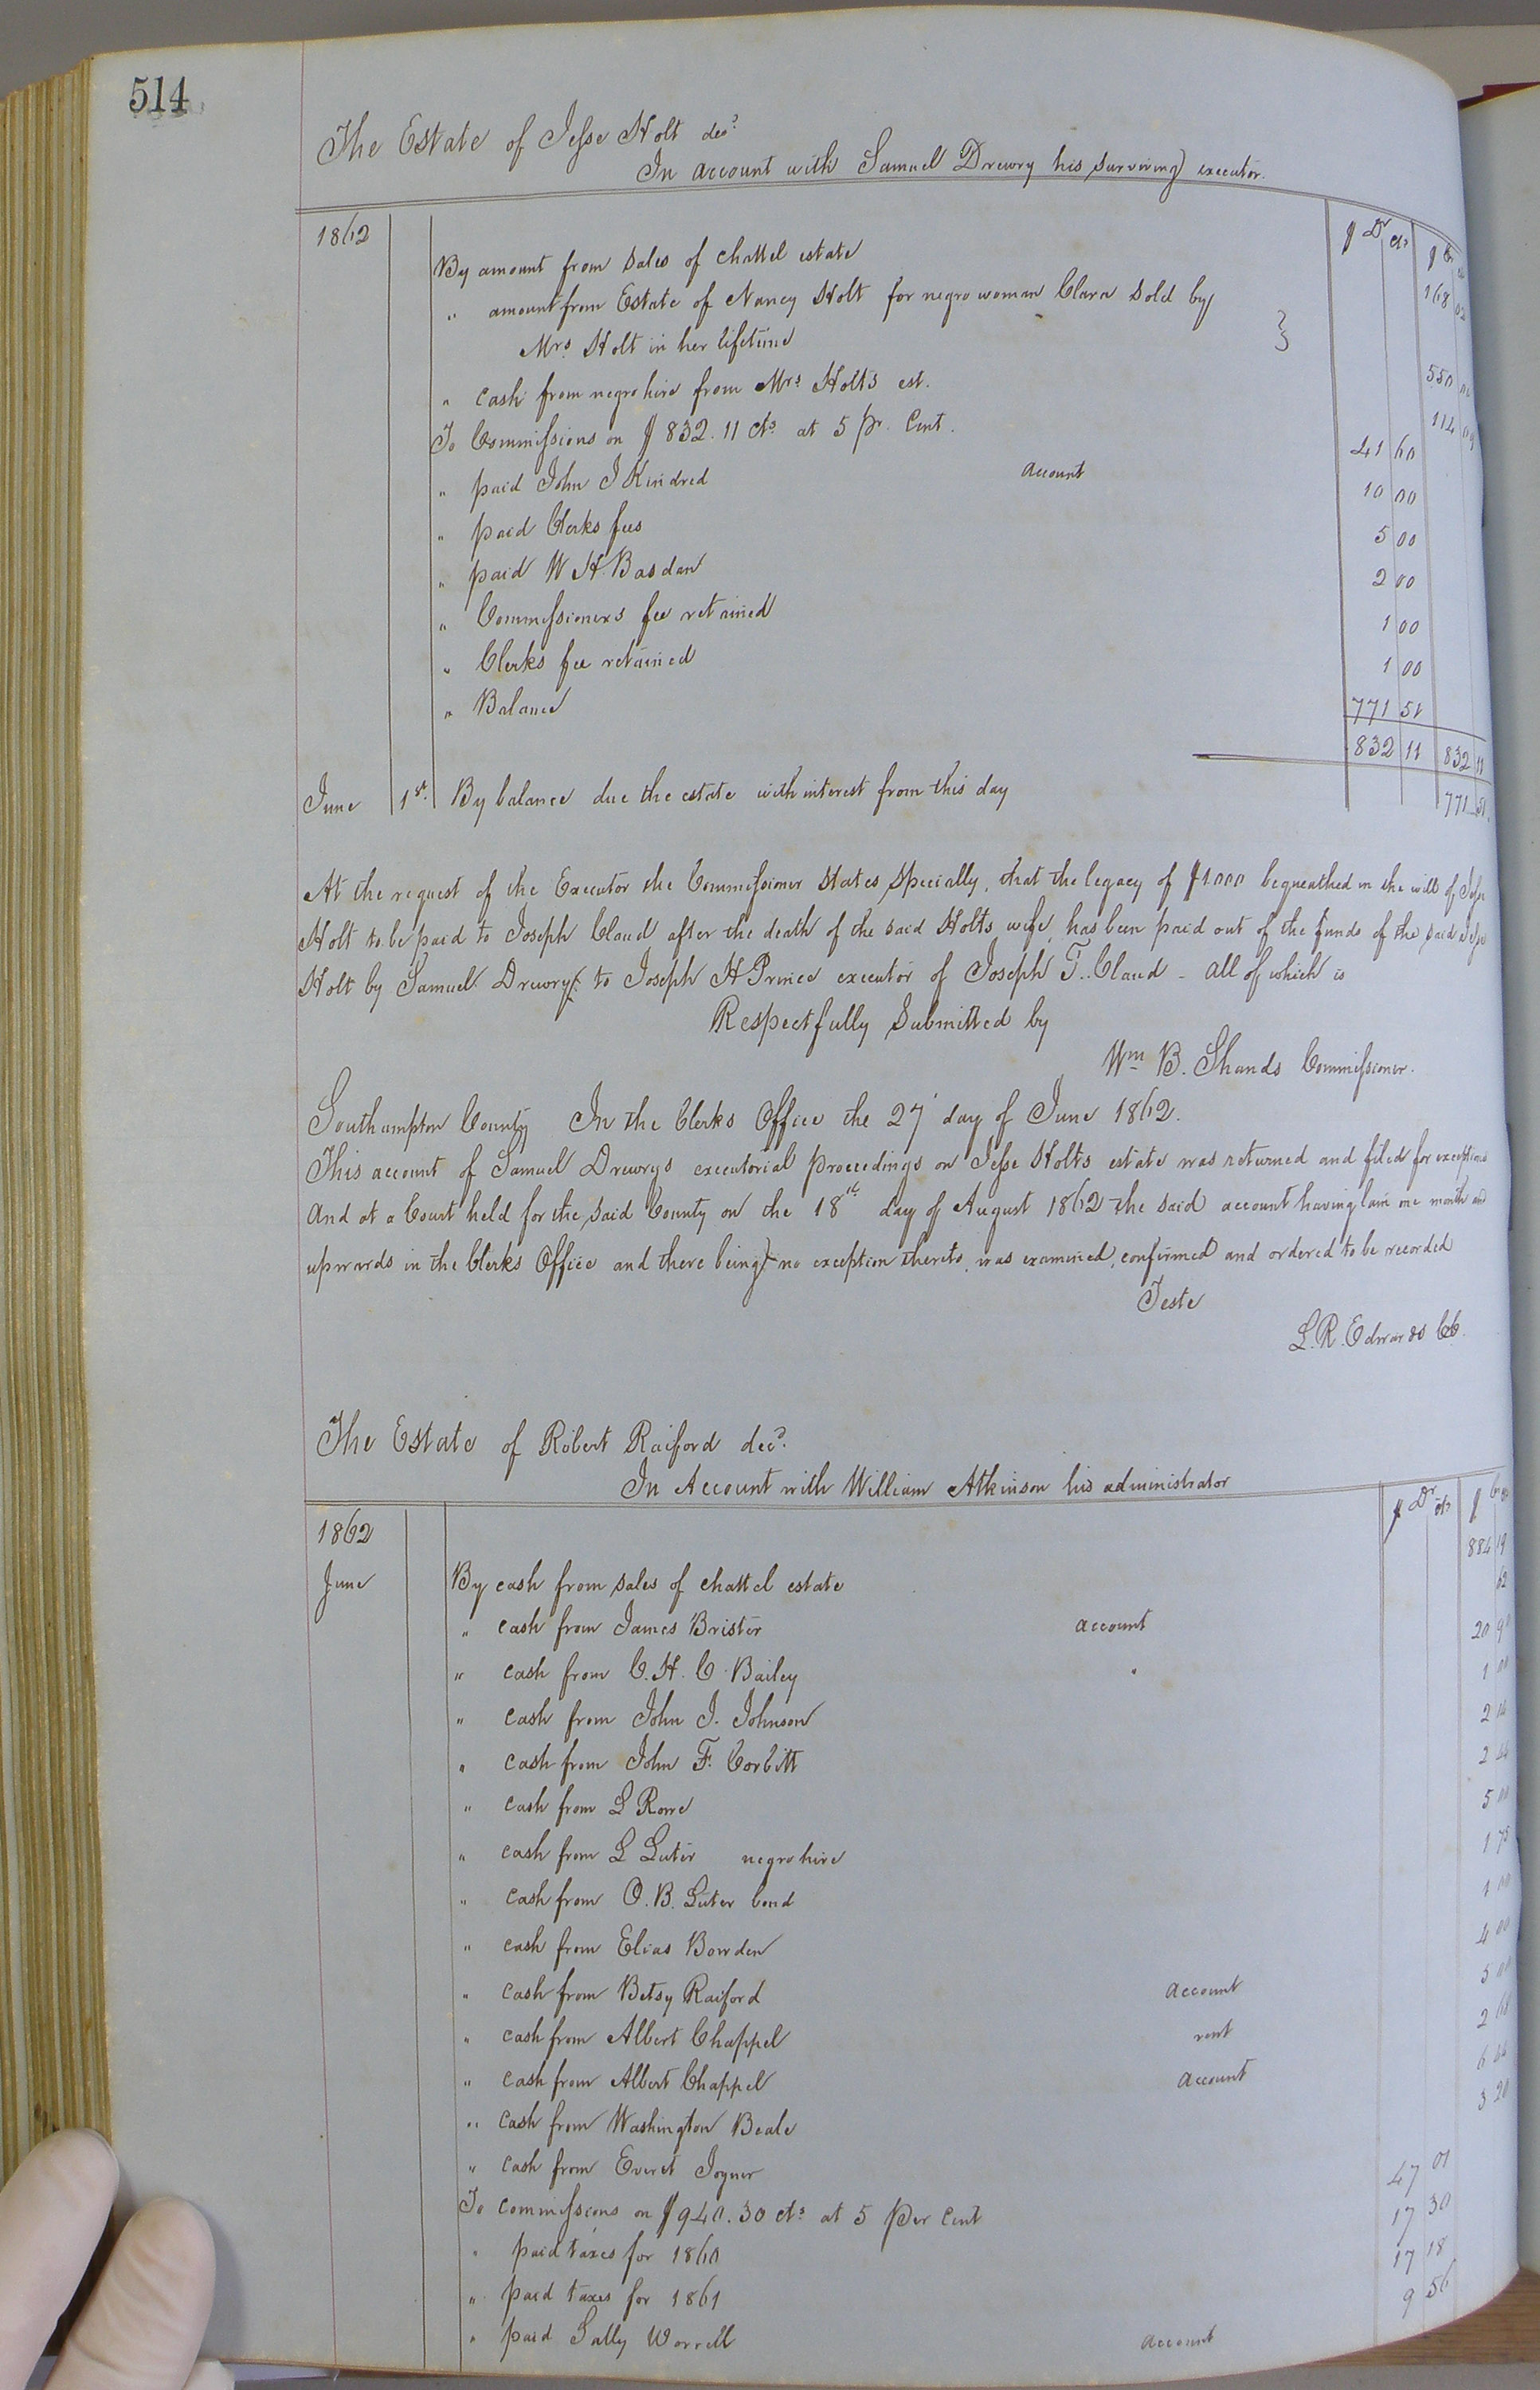 514
The Estate of Jesse Holt decd.
In account with Samuel Drewry his surviving executor.
1862 $ Dr cts $ Cr
By amount from sales of chattel estate 168 02
" amount from Estate of Nancy Holt for negro woman Clara sold by
Mrs. Holt in her lifetime 550 00
" cash from negro hire from Mrs Holts est. 114 09
To Commissions on $832.11 cts at 5 pr. Cent. 41 60
" paid John J Kindred account 10 00
" paid Clerks fees 5 00
" paid W H. Basdan 2 00
" Commissioners fee retained 1 00
" Clerks fee retained 1 00
" Balance 771 51
832 11 832 11
June 1st. By balance due the estate with interest from this day 771 51
At the request of the Executor the Commissioner states specially, that the legacy of $1000 bequeathed in the will of Jesse
Holt to be paid to Joseph Claud after the death of the said Holts wife, has been paid out of the funds of the said Jesse
Holt by Samuel Drewry to Joseph H Prince executor of Joseph T. Claud - all of which is
Respectfully Submitted by
Wm B. Shands Commissioner.
Southampton County In the Clerks Office the 27 day of June 1862.
This account of Samuel Drewrys executorial proceedings on Jesse Holts estate was returned and filed for exceptions
And at a Court held for the said County on the 18th day of August 1862 the said account having lain one month and
upwards in the Clerks Office and there being no exception thereto, was examined, confirmed and ordered to be recorded
Teste
L. R. Edwards CC.
The Estate of Robert Raiford decd.
In Account with William Atkinson his administrator
1862 $ Dr cts $ Cr cts
June By cash from sales of chattel estate 884 19
" cash from James Brister account 62
" cash from C. H. C. Bailey " 20 90
" cash from John J. Johnson 1 00
" cash from John F. Corbitt 2
" cash from L Rowe 2
" cash from L Luter negro hire 5 00
" cash from O. B. Luter bond 1 75
" cash from Elias Bowden 1 00
" cash from Betsy Raiford account 4 00
" cash from Albert Chappel rent 5 00
" cash from Albert Chappel account 2 68
" cash from Washington Beale 6
" cash from Everet Joyner 3 20
To commissions on $940.30 cts at 5 per cent 47 01
" paid taxes for 1860 17 30
" paid taxes for 1861 17 18
" paid Sally Worrell account 9 56